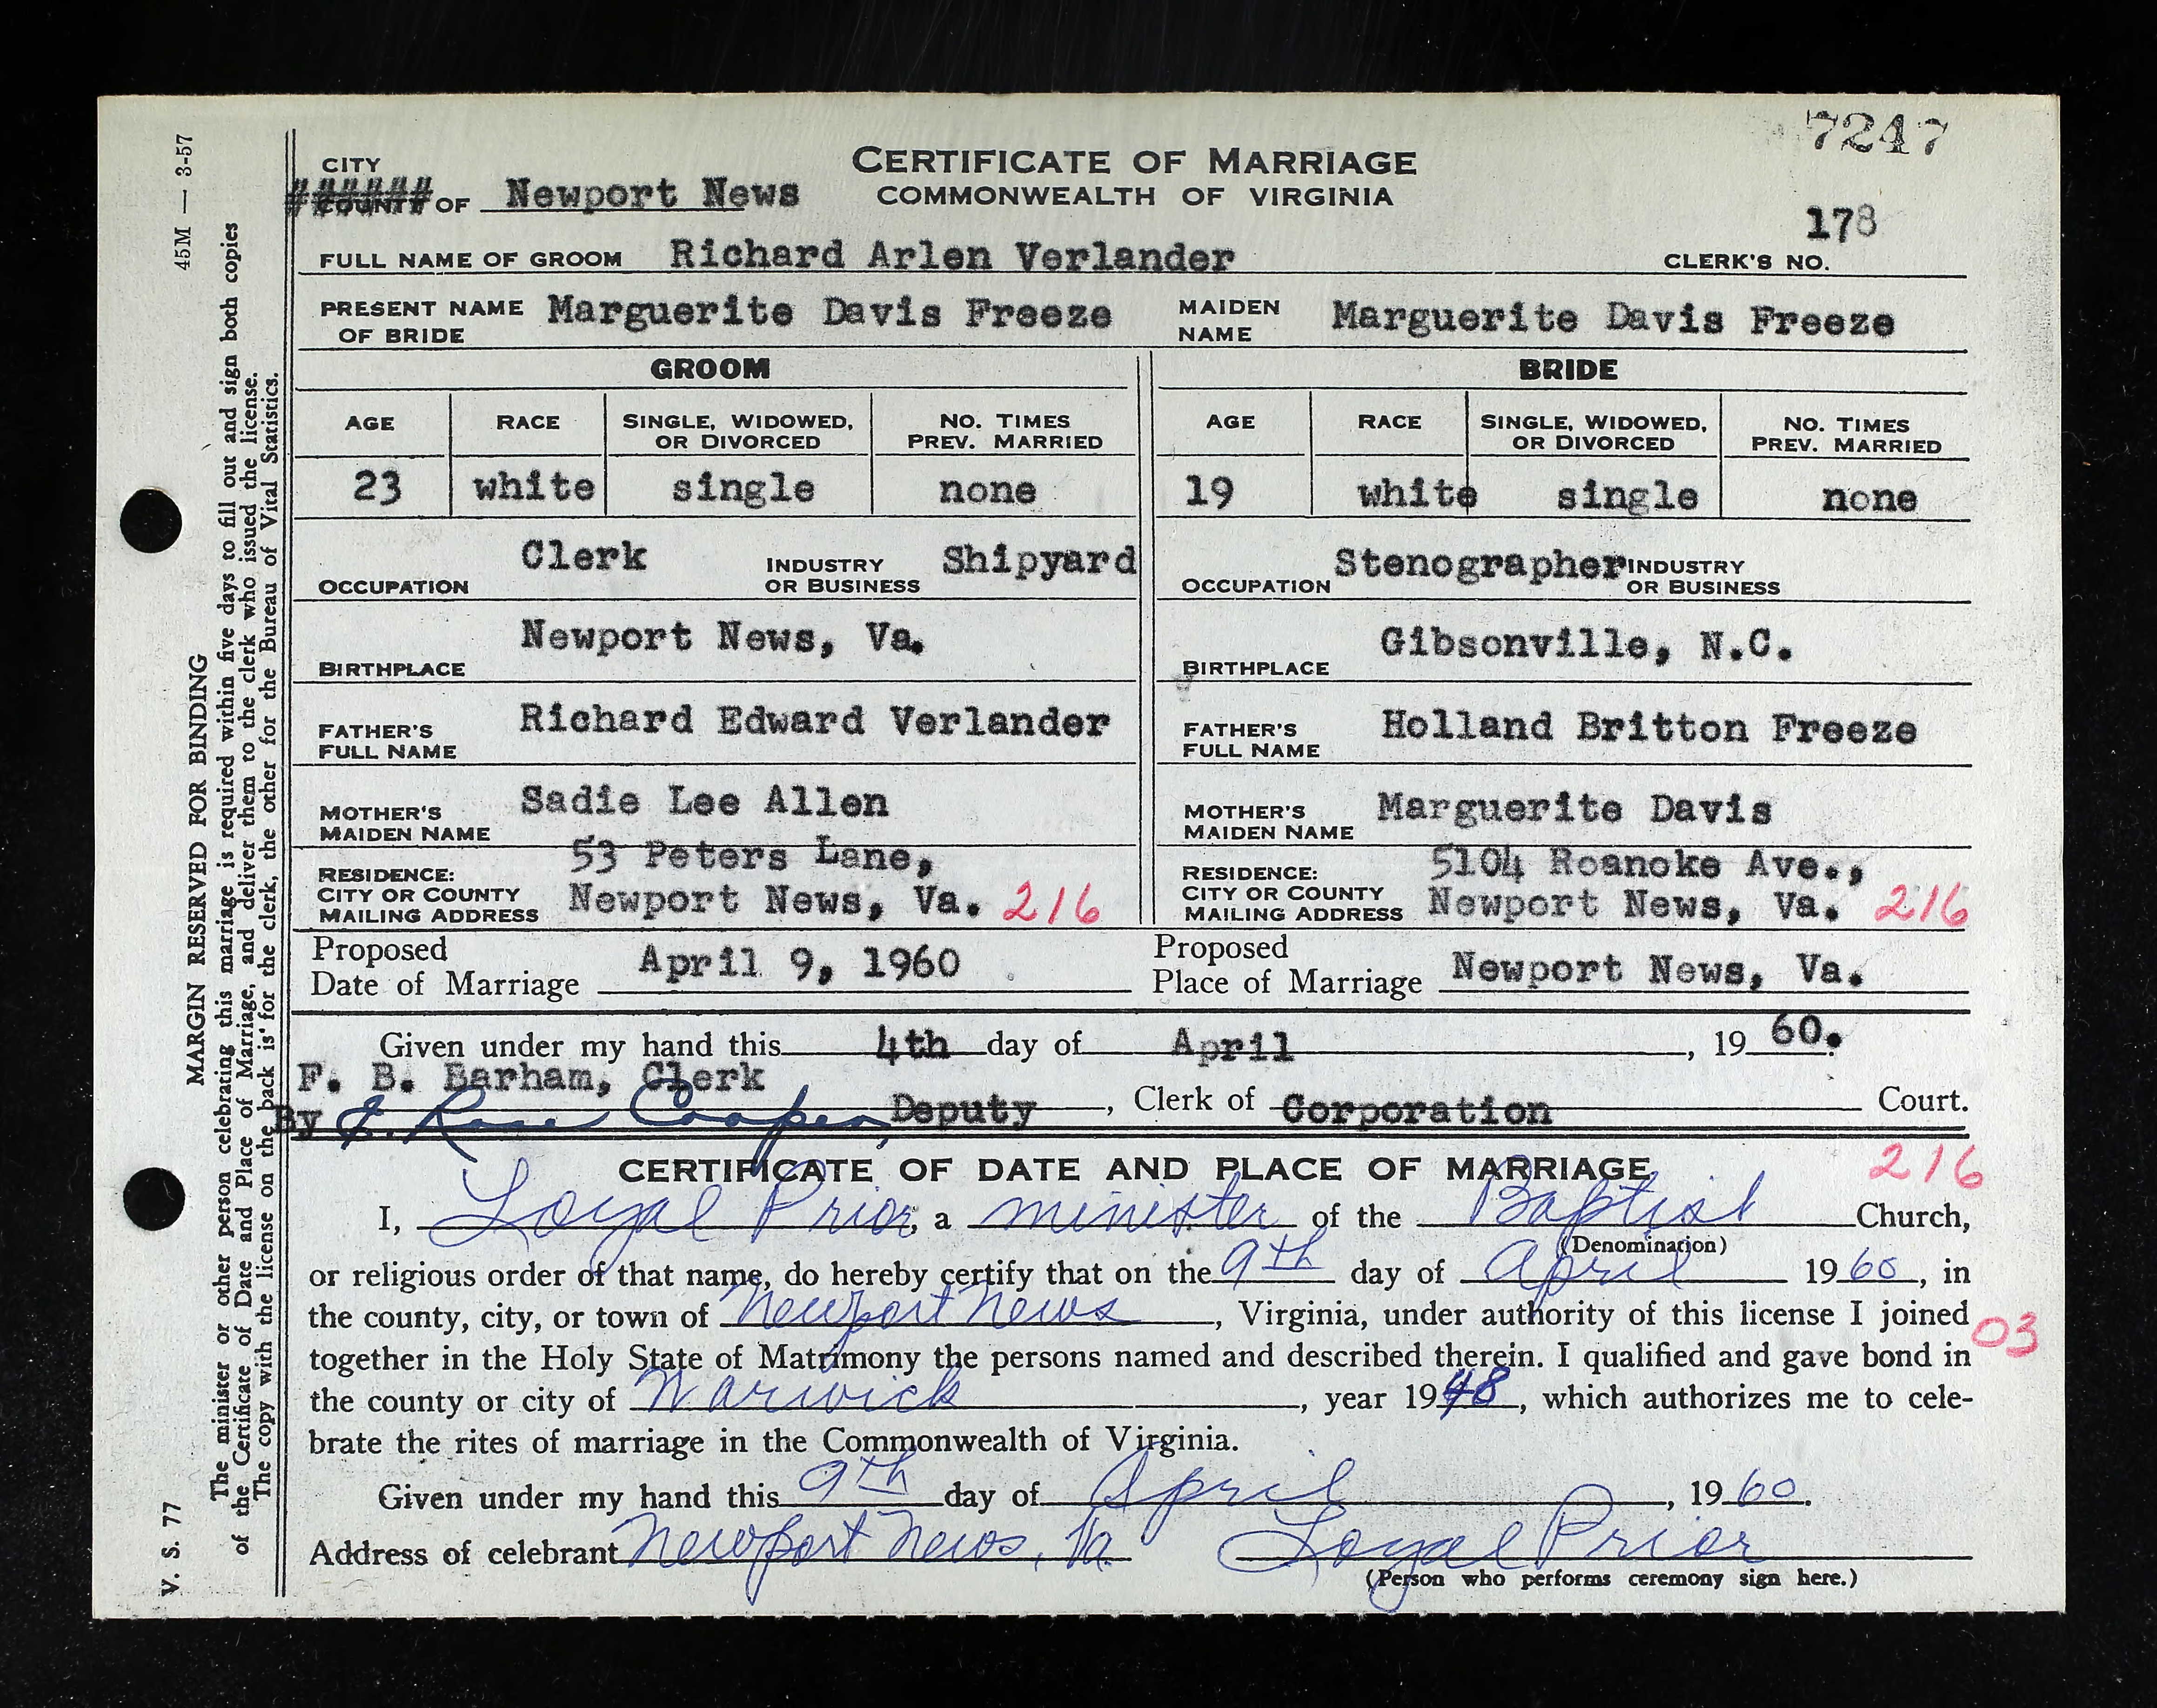 7247
CITY
###### COUNTY OF Newport News
CERTIFICATE OF MARRIAGE
COMMONWEALTH OF VIRGINIA
178
FULL NAME OF GROOM Richard Arlen Verlander CLERK'S NO.
PRESENT NAME OF BRIDE Marguerite Davis Freeze MAIDEN NAME Marguerite Davis Freeze
GROOM BRIDE
AGE RACE SINGLE, WIDOWED, OR DIVORCED NO. TIMES PREV. MARRIED AGE RACE SINGLE, WIDOWED, OR DIVORCED NO. TIMES PREV. MARRIED
23 white single none 19 white single none
OCCUPATION Clerk INDUSTRY OR BUSINESS Shipyard OCCUPATION Stenographer INDUSTRY OR BUSINESS
BIRTHPLACE Newport News, Va. BIRTHPLACE Gibsonville, N.C.
FATHER'S FULL NAME Richard Edward Verlander FATHER'S FULL NAME Holland Britton Freeze
MOTHER'S MAIDEN NAME Sadie Lee Allen MOTHER'S MAIDEN NAME Marguerite Davis
RESIDENCE: CITY OR COUNTY MAILING ADDRESS 53 Peters Lane, Newport News, Va. 216 RESIDENCE: CITY OR COUNTY MAILING ADDRESS 5104 Roanoke Ave., Newport News, Va. 216
Proposed Date of Marriage April 9, 1960 Proposed Place of Marriage Newport News, Va.
Given under my hand this 4th day of April, 1960.
F. B. Barham, Clerk
By E. Rose Cooper, Deputy, Clerk of Corporation Court.
CERTIFICATE OF DATE AND PLACE OF MARRIAGE 216
I, Loyal Prior, a minister of the Baptist Church,
(Denomination)
or religious order of that name, do hereby certify that on the 9th day of April 1960, in
the county, city, or town of Newport News, Virginia, under authority of this license I joined
03
together in the Holy State of Matrimony the persons named and described therein. I qualified and gave bond in
the county or city of Warwick, year 1948, which authorizes me to cele-
brate the rites of marriage in the Commonwealth of Virginia.
Given under my hand this 9th day of April, 1960.
Address of celebrant Newport News, Va. Loyal Prior
(Person who performs ceremony sign here.)
V. S. 77 MARGIN RESERVED FOR BINDING 45M — 3-57
The minister or other person celebrating this marriage is required within five days to fill out and sign both copies
of the Certificate of Date and Place of Marriage, and deliver them to the clerk who issued the license.
The copy with the license on the back is for the clerk, the other for the Bureau of Vital Statistics.